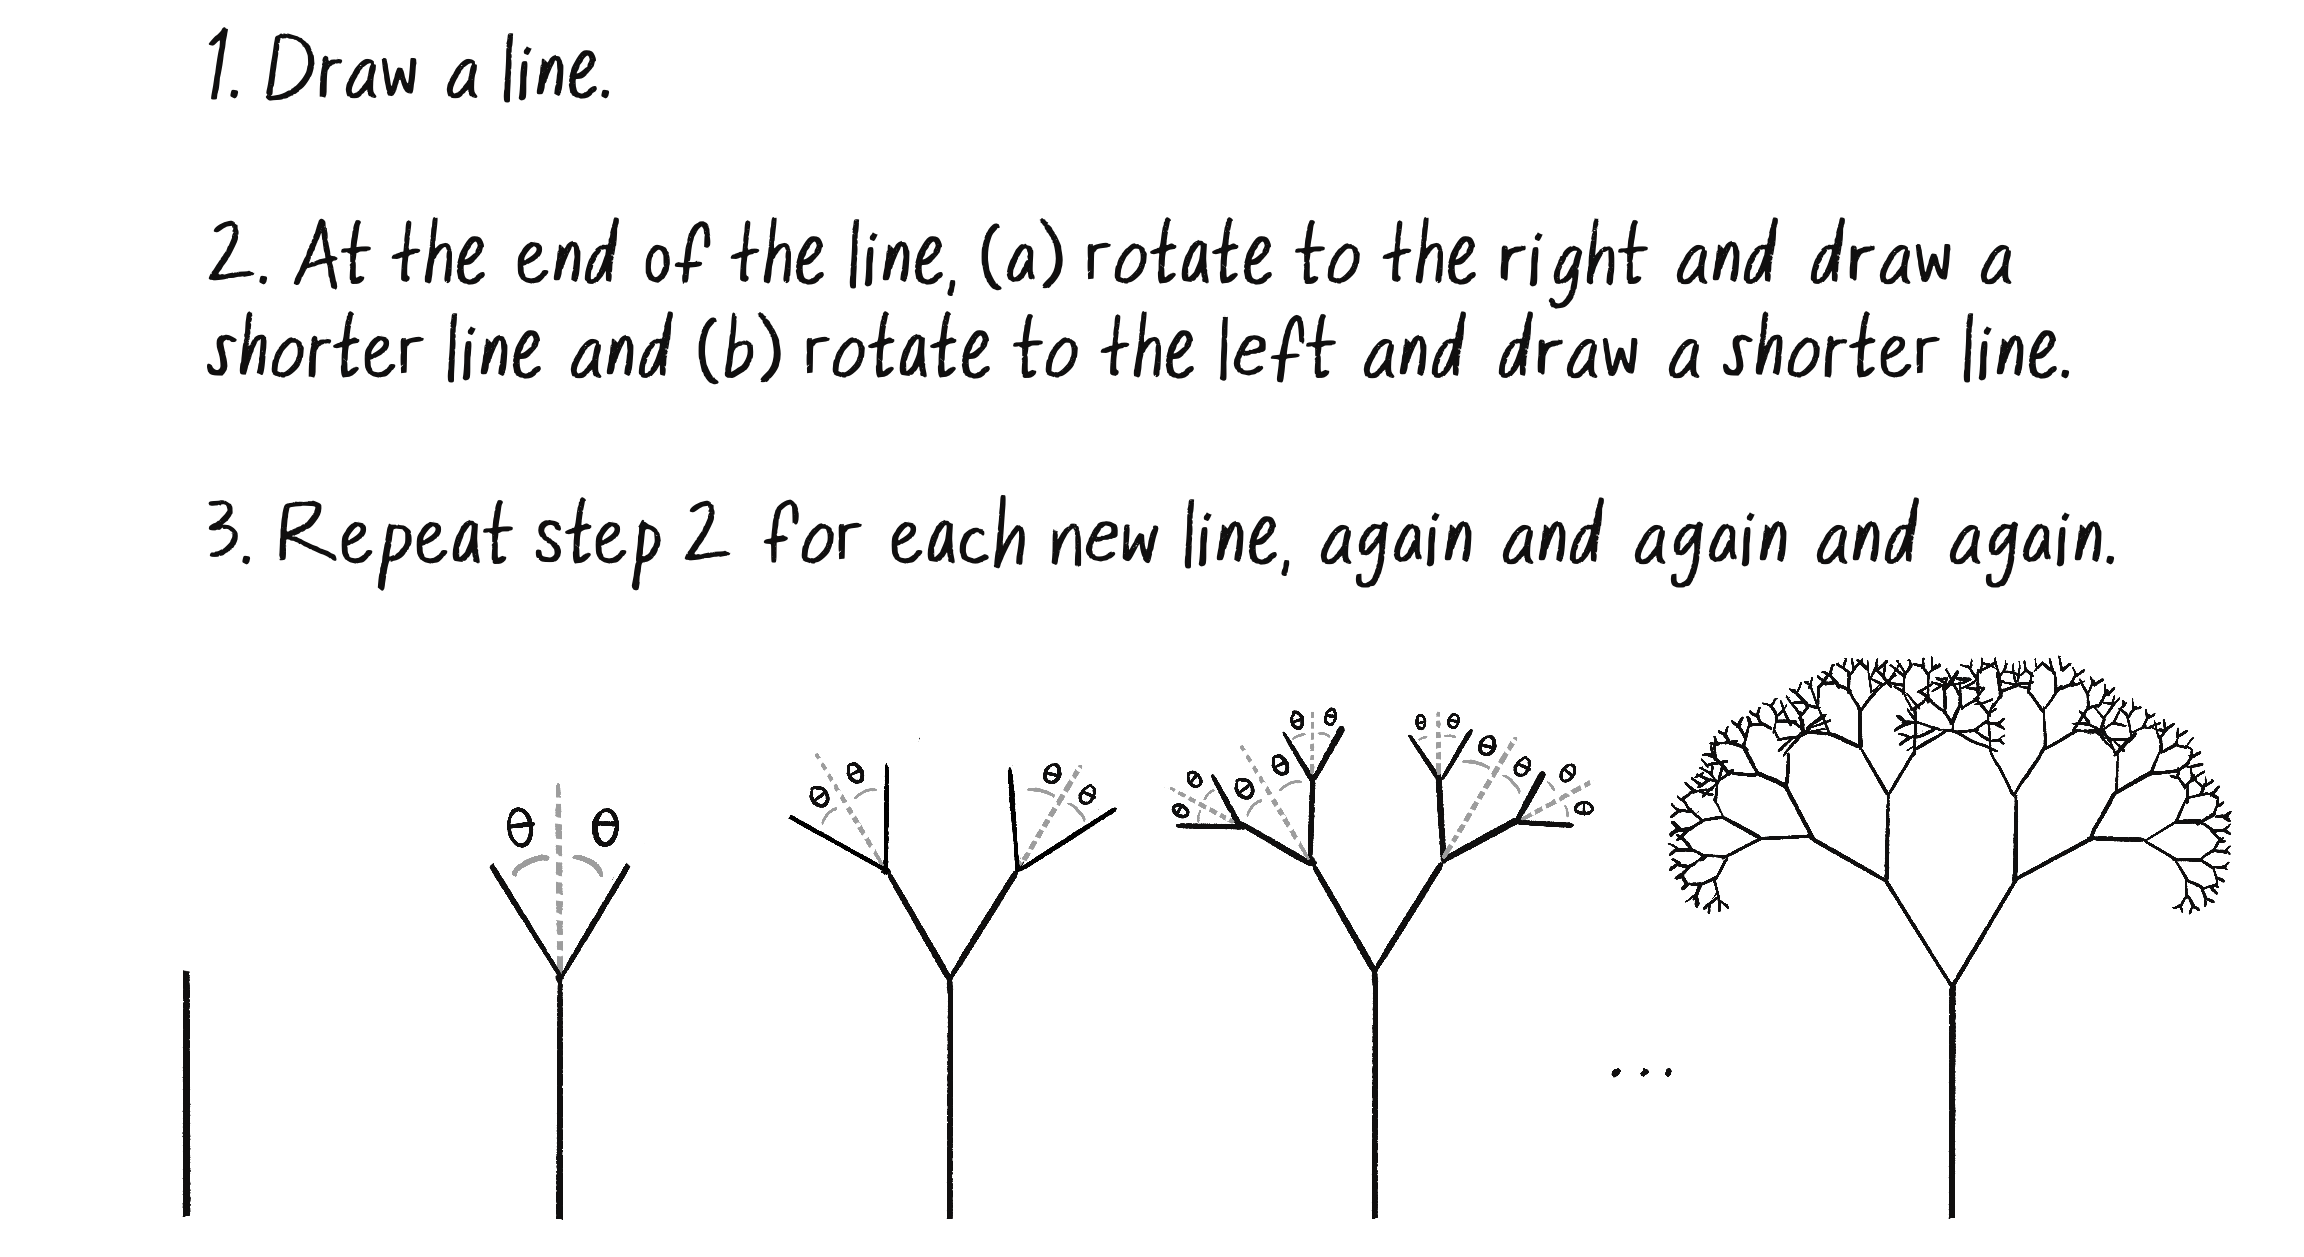 1. Draw a line.
2. At the end of the line, (a) rotate to the right and draw a
shorter line and (b) rotate to the left and draw a shorter line.
3. Repeat step 2 for each new line, again and again and again.
θ θ
θ θ θ θ
θ θ θ θ θ θ θ θ θ θ θ θ
...